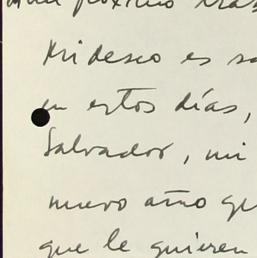 próximo
Mi deseo es
en estos días,
Salvador, mi
nuevo año
que le quieren